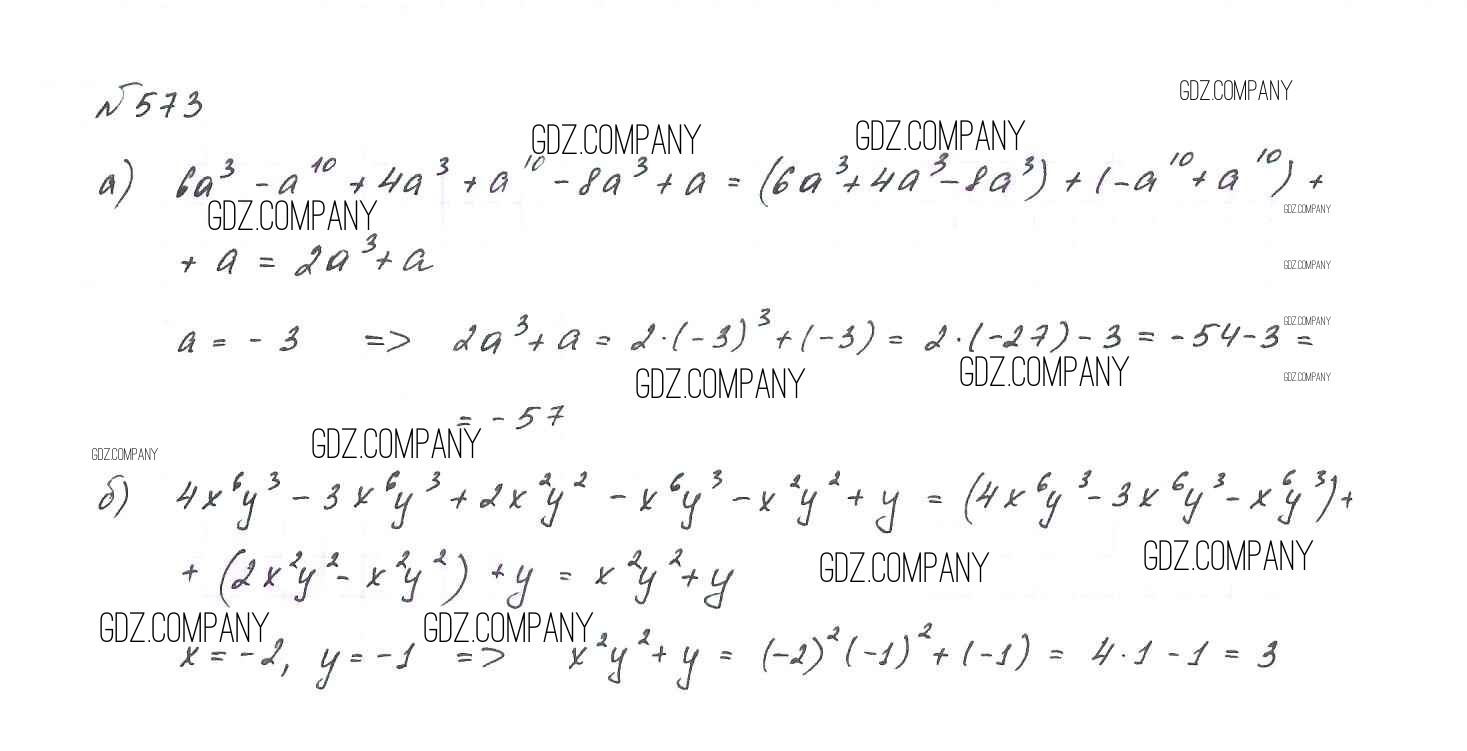 №573
GDZ.COMPANY
GDZ.COMPANY GDZ.COMPANY
а) 6a³ - a¹⁰ + 4a³ + a¹⁰ - 8a³ + a = (6a³ + 4a³ - 8a³) + (-a¹⁰ + a¹⁰) +
GDZ.COMPANY GDZ.COMPANY
+ a = 2a³ + a
GDZ.COMPANY
GDZ.COMPANY
a = - 3 => 2a³ + a = 2·(-3)³ + (-3) = 2·(-27) - 3 = -54 - 3 =
GDZ.COMPANY GDZ.COMPANY GDZ.COMPANY
= - 57
GDZ.COMPANY GDZ.COMPANY
б) 4x⁶y³ - 3x⁶y³ + 2x²y² - x⁶y³ - x²y² + y = (4x⁶y³ - 3x⁶y³ - x⁶y³) +
+ (2x²y² - x²y²) + y = x²y² + y
GDZ.COMPANY GDZ.COMPANY
GDZ.COMPANY GDZ.COMPANY
x = -2, y = -1 => x²y² + y = (-2)²(-1)² + (-1) = 4·1 - 1 = 3